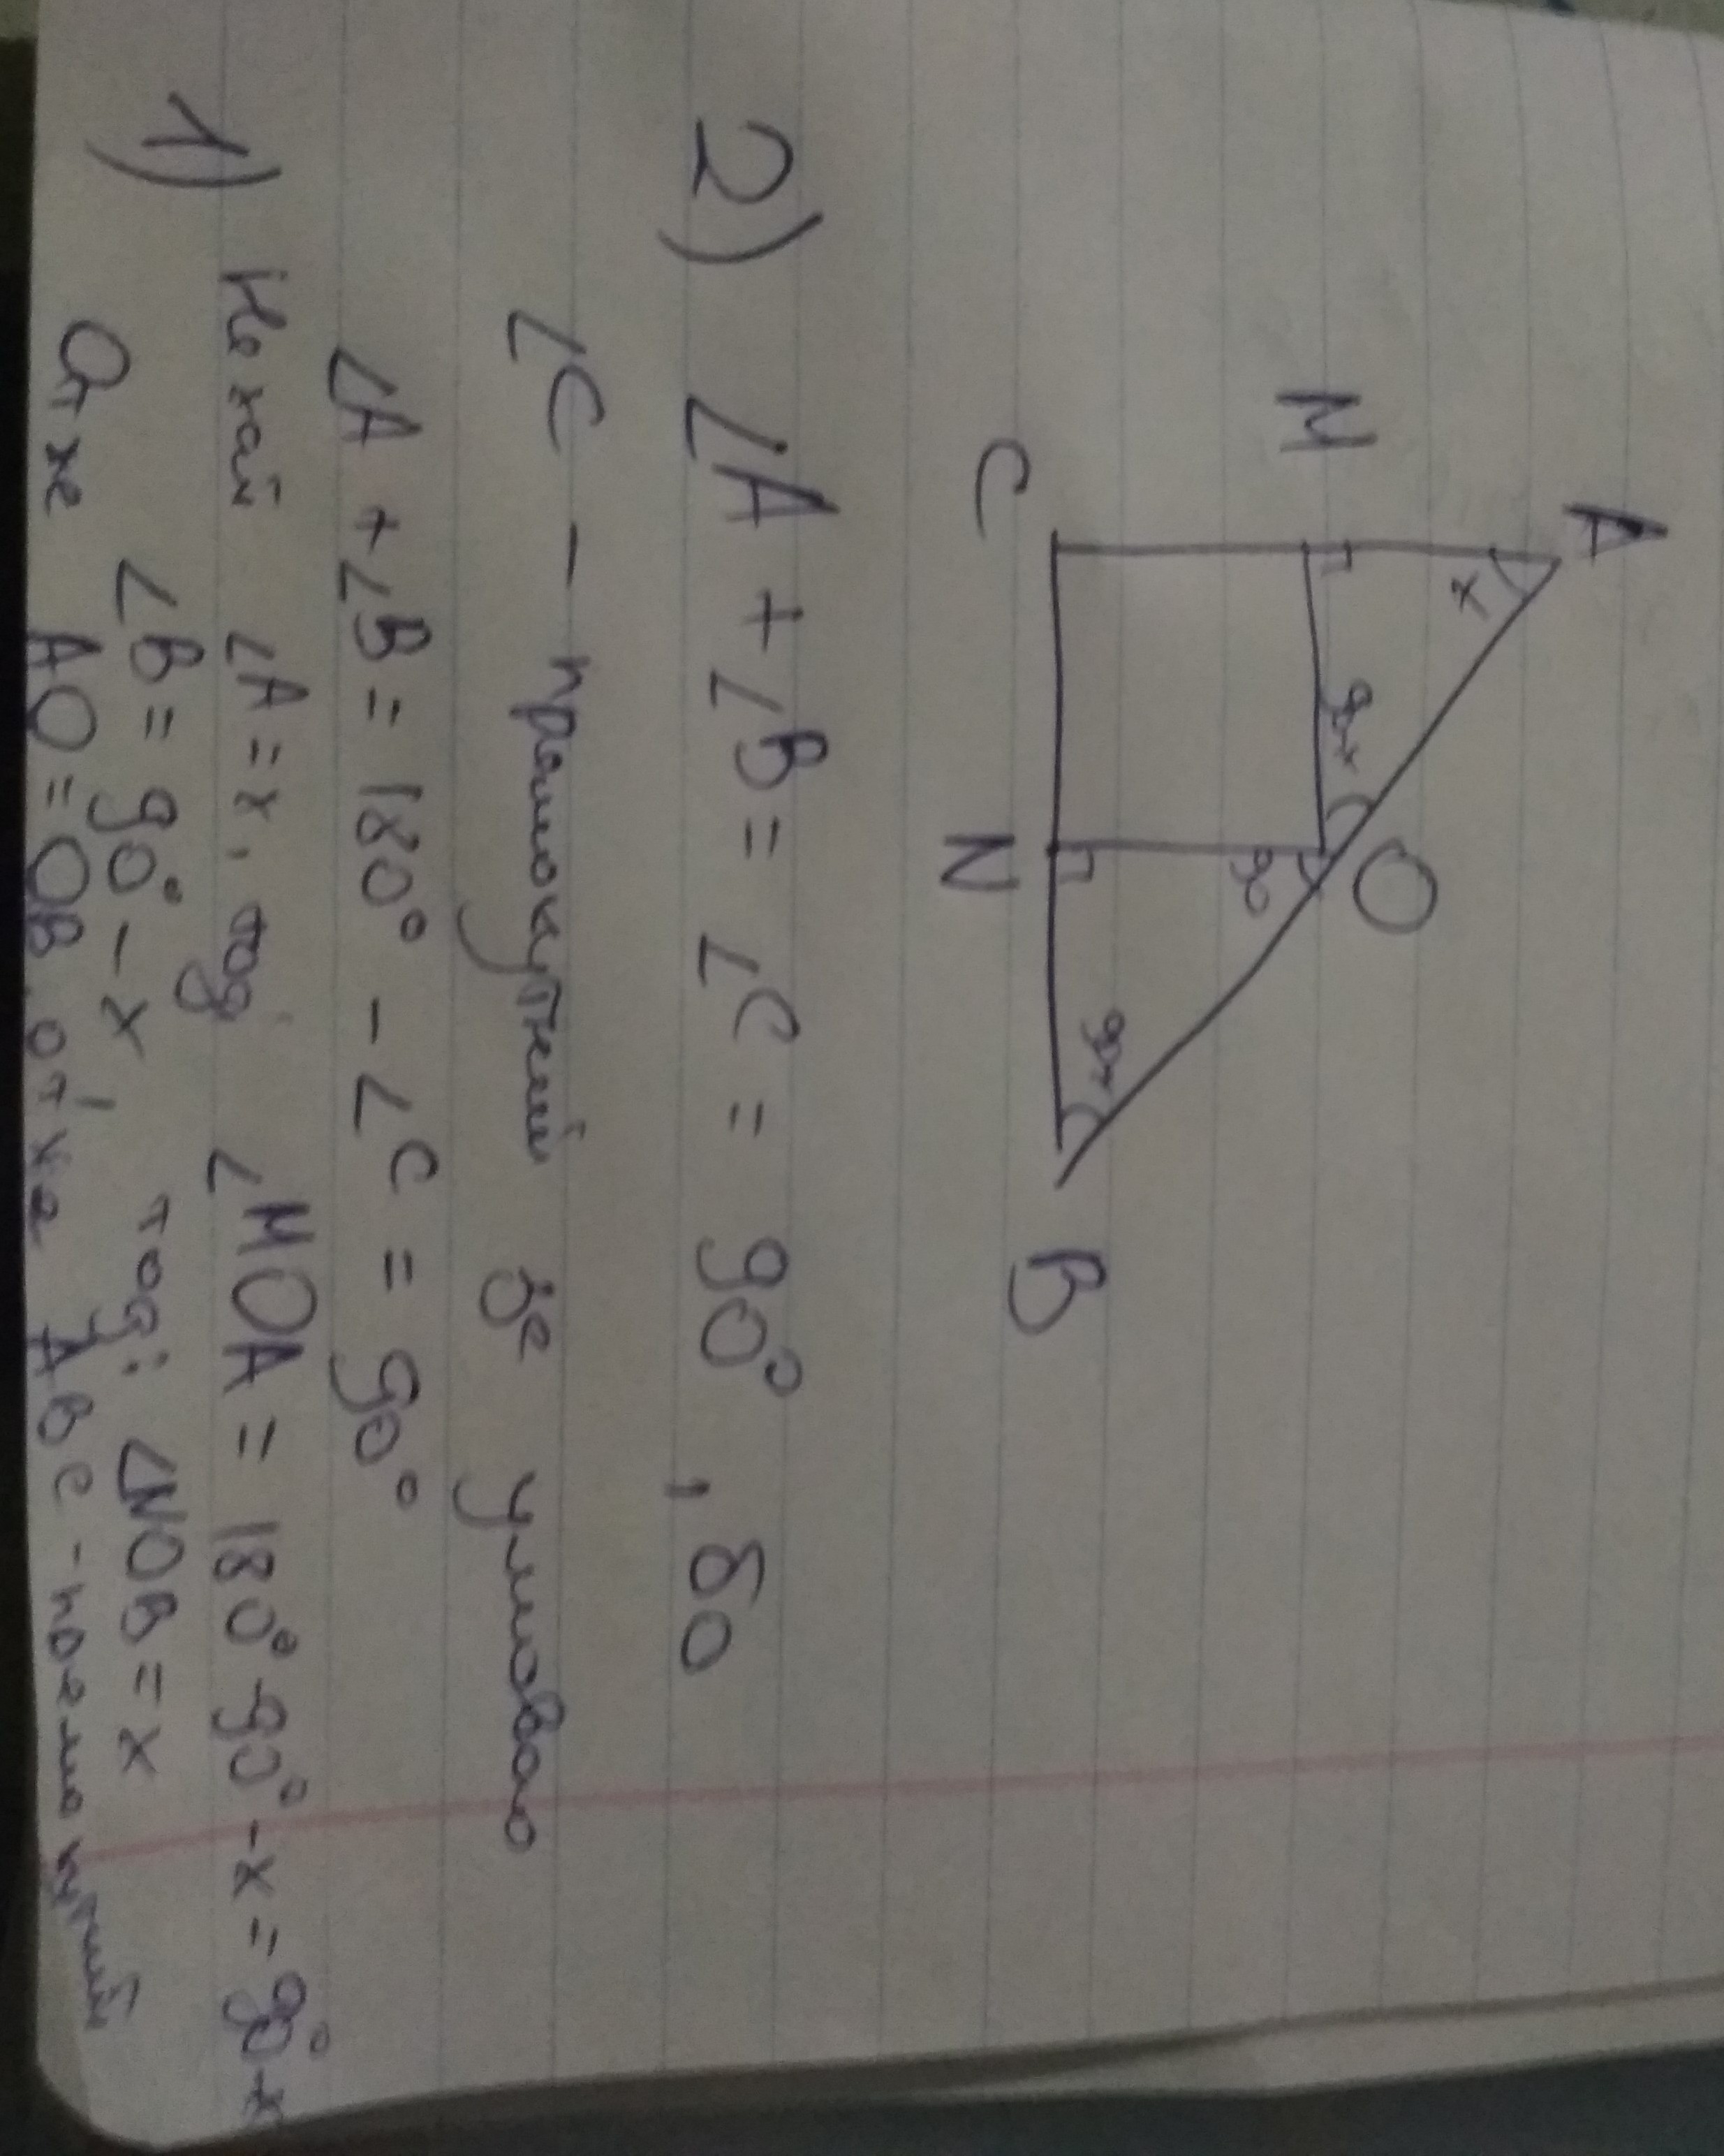 A
M
x
90-x
O
90
C
N
90-x
B
2) ∠A + ∠B = ∠C = 90°, бо
∠C - прямокутний за умовою
∠A + ∠B = 180° - ∠C = 90°
1) Нехай ∠A = x, тоді ∠MOA = 180°-90°-x = 90°-x
∠B = 90° - x тоді ∠NOB = x
Отже AO = OB, отже ABC -